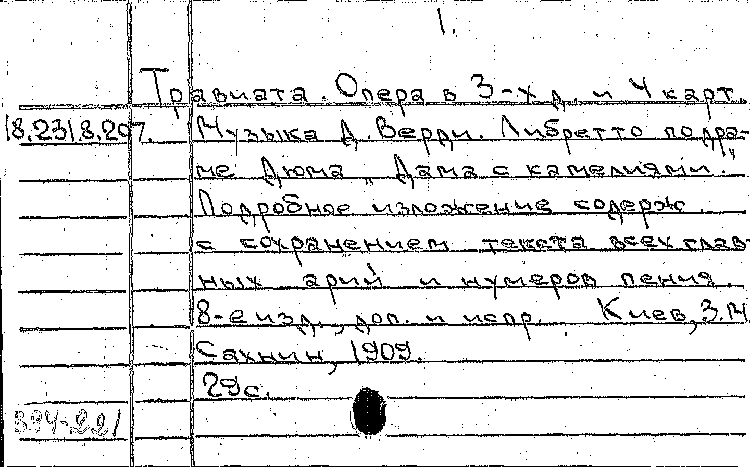 1.
Травиата. Опера в 3-х д. и 4 карт.
18.231 8.207. Музыка Д. Верди. Либретто по дра-
ме Дюма „Дама с камелиями."
Подробное изложение содерж.
с сохранением текста всех глав-
ных арий и нумеров пения.
8-е изд., доп. и испр. Киев, З.М.
Сахнин, 1909.
29с.
394-221